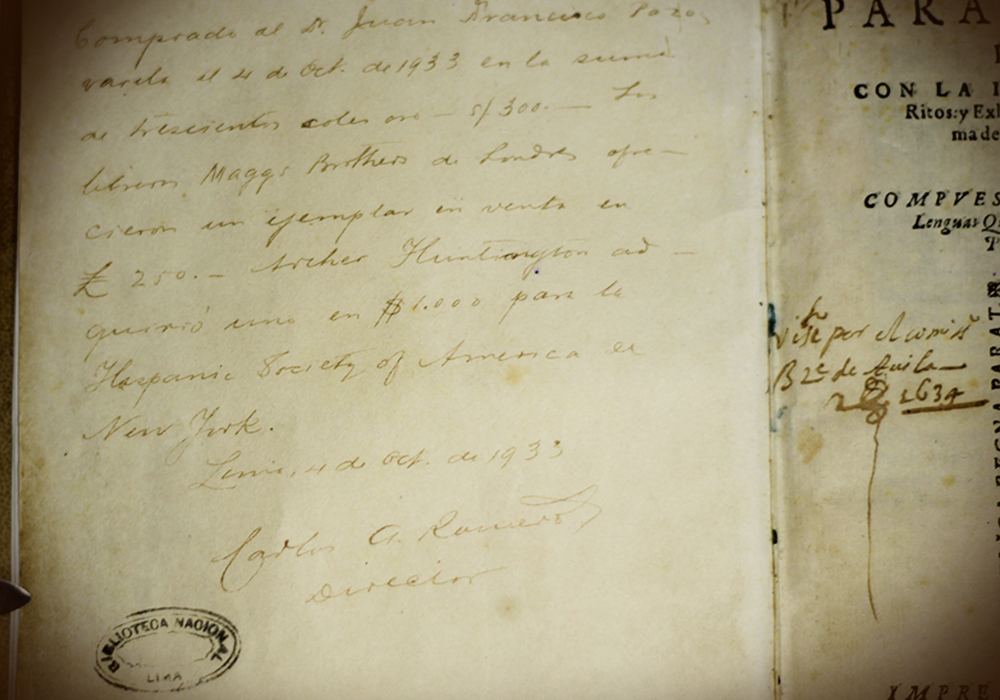 Comprado al Dr. Juan Francisco Pazos
varela el 4 de Oct. de 1933 en la suma
de trescientos soles oro — S/ 300.— Los
libreros Maggs Brothers de Londres ofre—
cieron un ejemplar en venta en
£ 250.— Archer Huntington ad—
quirió uno en $1.000 para la
Hispanic Society of America de
New York.
Lima, 4 de Oct. de 1933
Carlos A. Romero
Director
BIBLIOTECA NACIONAL
LIMA
PARA
CON LA I
Ritos: y Exh
ma de
COMPVES
Lenguas Q
por el
de Auila
1634
IMPRE